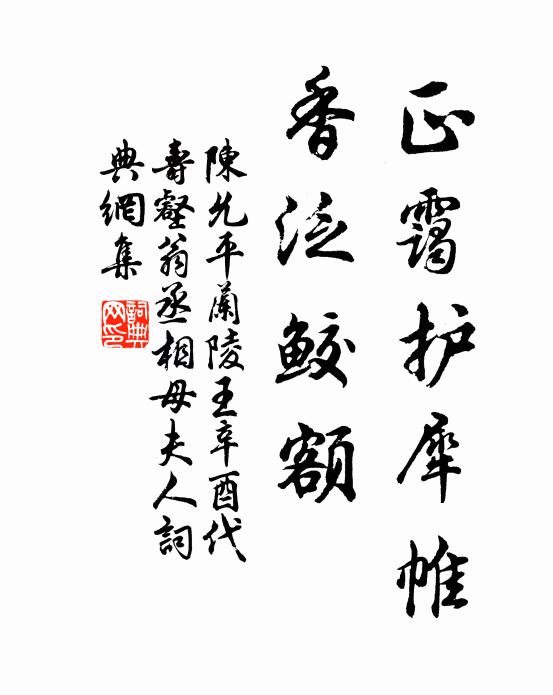 正靄护犀帷
香泛鮫額
陳允平蘭陵王辛酉代
壽壑翁丞相母夫人詞
典網集
詞典
网印